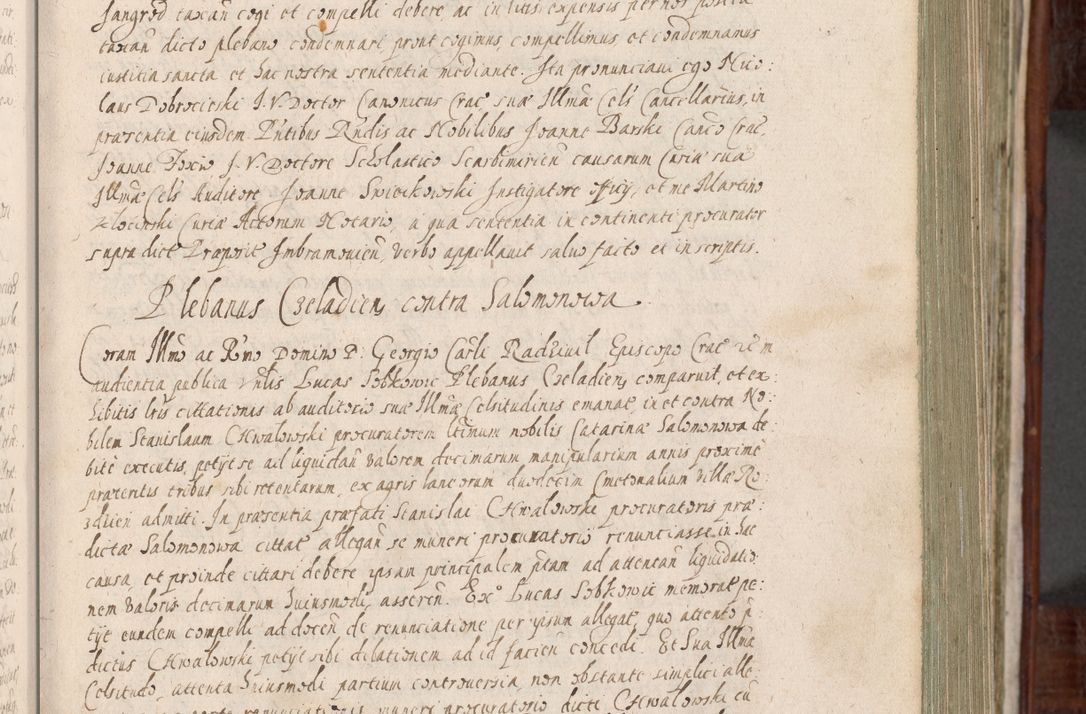 taxan dicto plebano condemnari prout cogimus, compellimus et condemnamus
iustitia sancta et hac nostra sententia mediante. Ita pronunciaui ego Nico:
laus Dobrocieski J. V. Doctor Canonicus Crac suæ Illmæ Cels Cancellarius, in
præsentia eiusdem Pntibus Rndis ac Nobilibus Joanne Barski Canco Crac,
Joanne Foxio J. V. Doctore Scholastico Scarbimirien causarum Curiæ suæ
Illmæ Cels Auditore Joanne Swieckowski Instigatore officij, et me Martino
Zlocinski Curiæ Actorum Notario, a qua sententia in continenti procurator
supra dict Præposit Imbramouicen, verbo appellauit saluo facto et in scriptis.
Plebanus Czeladien, contra Salomonowa.
Coram Illmo ac Rmo Domino D: Georgio Carli Radziuil Episcopo Crac
audientia publica Vnlis Lucas Sobkowic Plebanus Czeladien, comparuit, et ex:
hibitis lris cittationis ab auditorio suæ Illmæ Celsitudinis emanat, in et contra No:
bilem Stanislaum Chwalowski procuratorem ltimum nobilis Catarinæ Salomonowa de:
bite executis, petijt se ad liquidan valorem decimarum manipularium annis proxime
præteritis tribus sibi retentarum, ex agris laneorum duodecim Cmetonalium villæ Ro:
dzien admitti. In præsentia præfati Stanislai Chwalowski procuratoris præ:
dictæ Salomonowa cittat allegan se muneri procuratorio renunciasse in hac
causa, et proinde cittari debere ipsam principalem ptam ad attentan liquidatio:
nem valoris decimarum huiusmodi, asseren. Ex Lucas Sobkowic memorat pe:
tijt eundem compelli ad docen de renunciatione per ipsum allegat, quo attento p:
dictus Chwalowski petijt sibi dilationem ad id facien concedi. Et Sua Illma
Celsitudo, attenta huiusmodi partium controversia, non obstante simplici alle:
renunciationis muneri procuratorio dicti Chwalowski